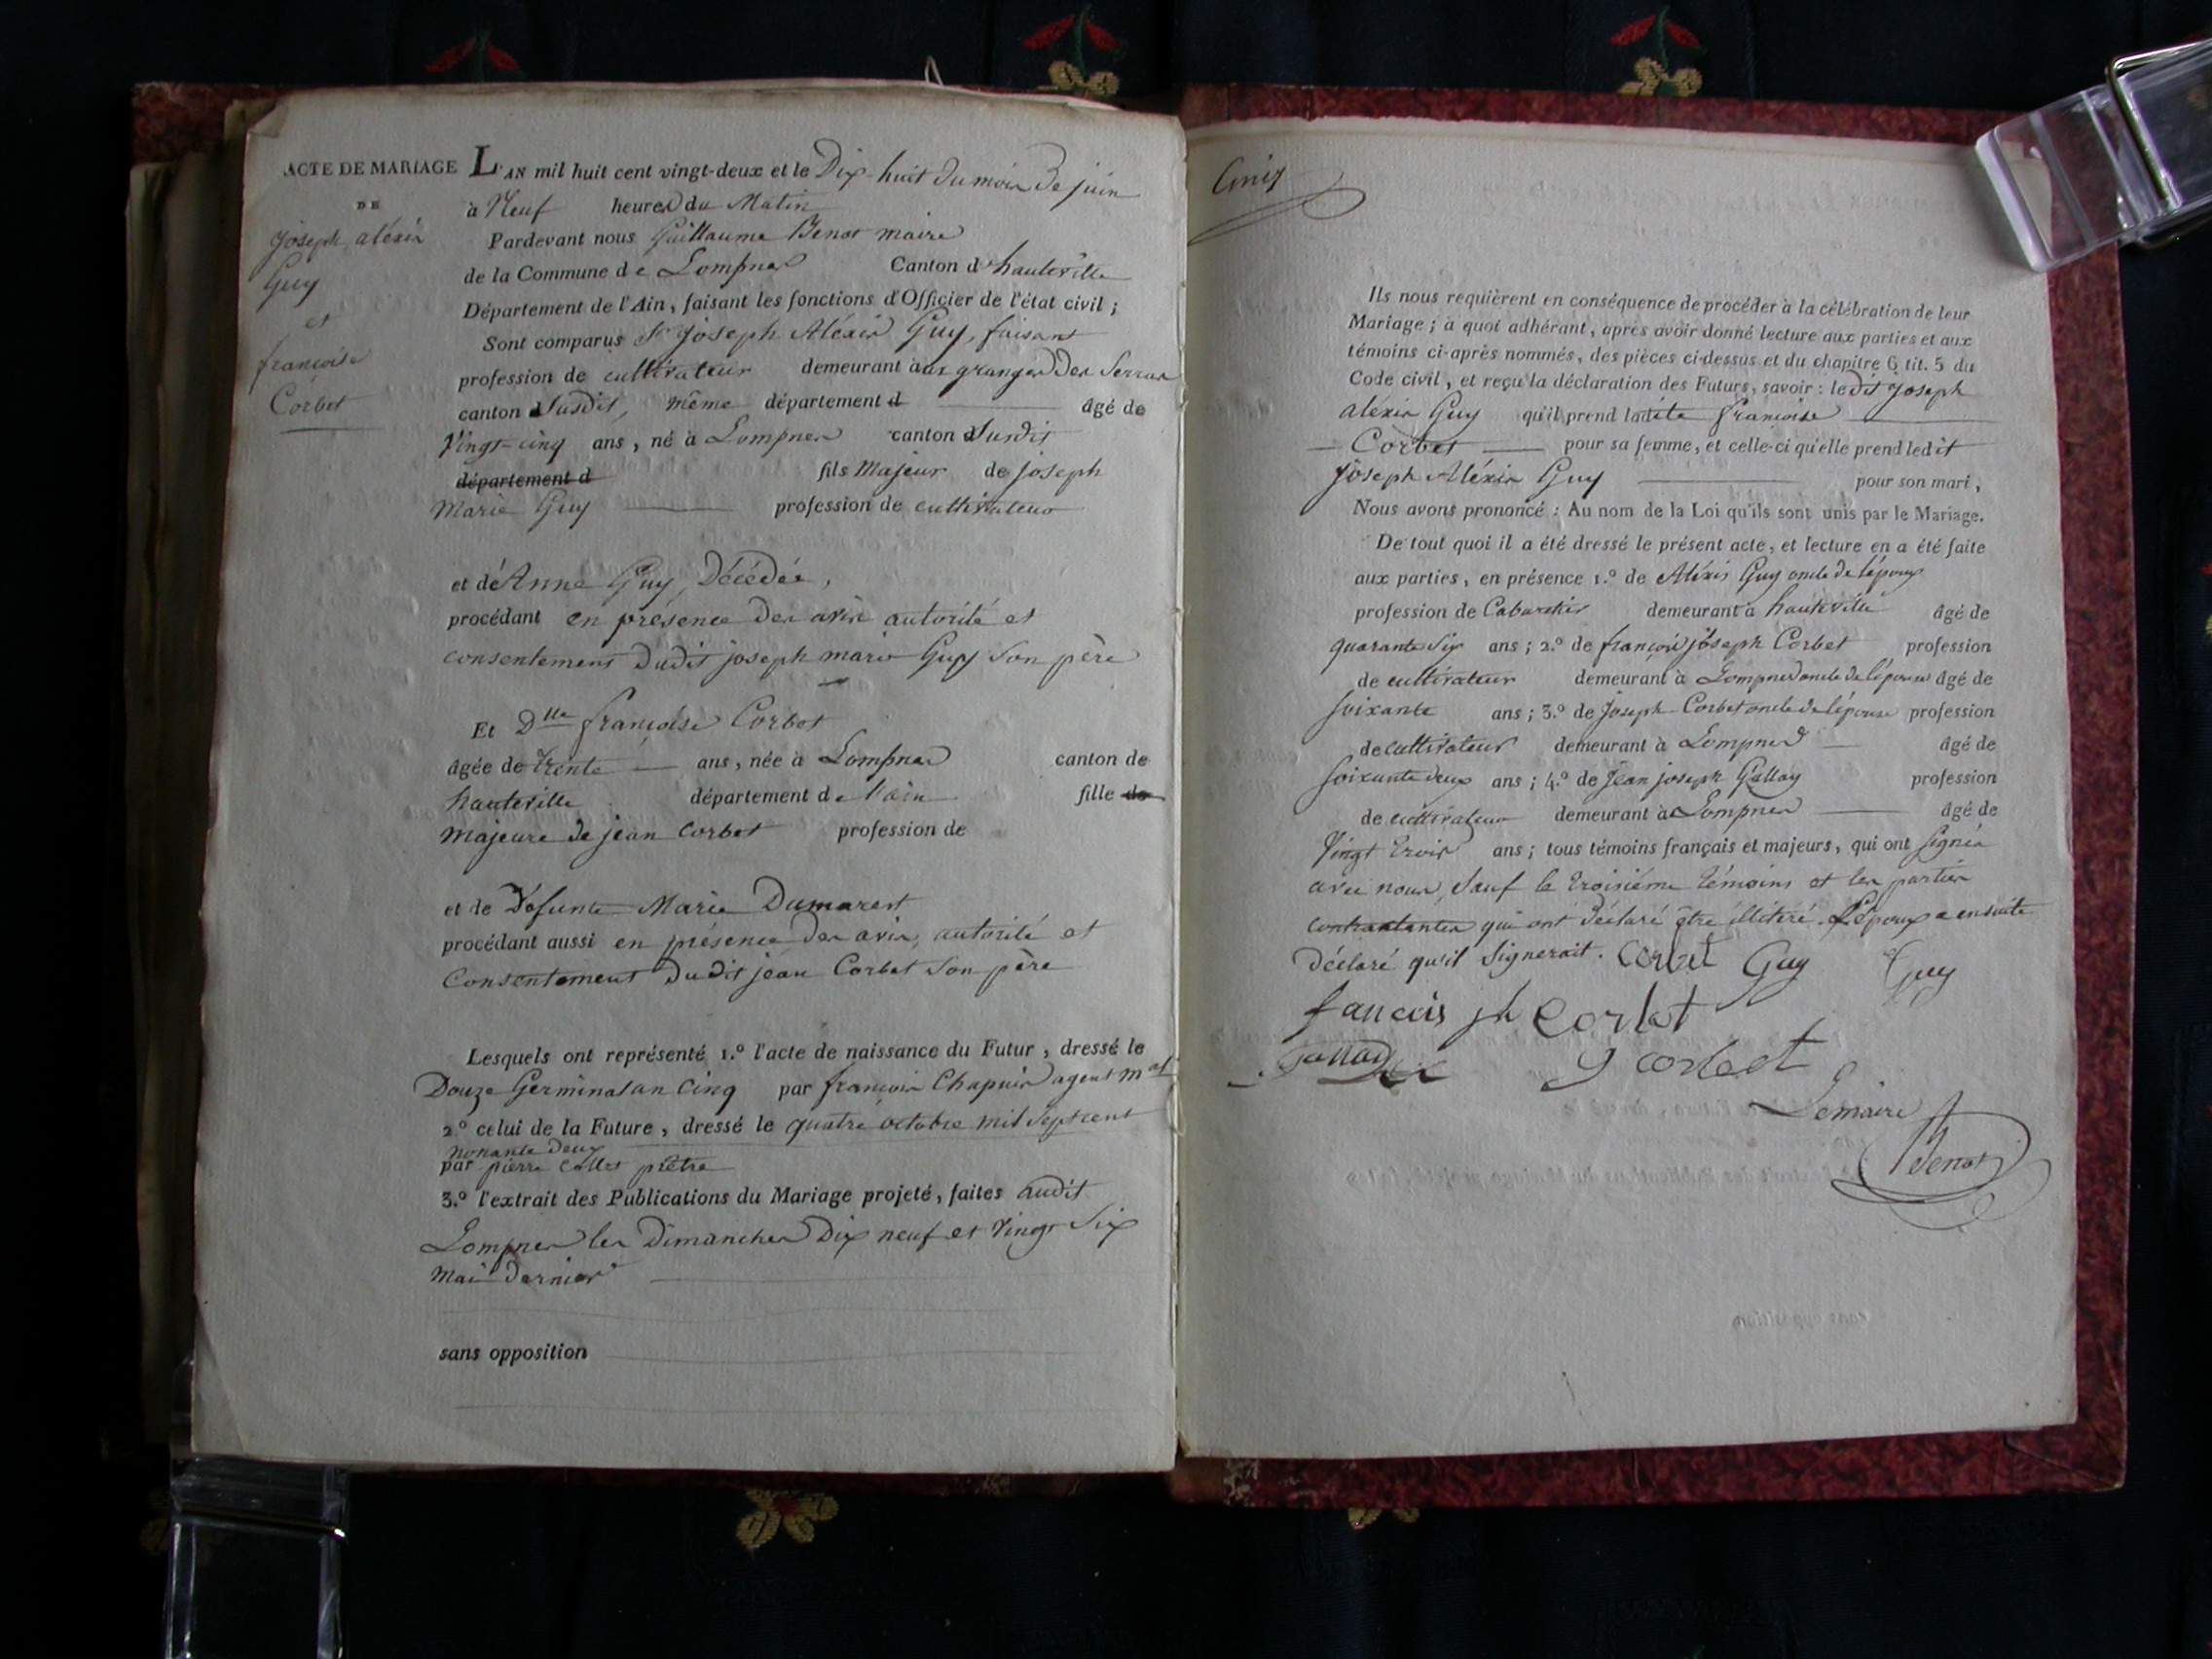 ACTE DE MARIAGE
DE
joseph aléxis
Guy
et
françoise
Corbet
L'AN mil huit cent vingt-deux et le Dix-huit du mois de juin
à Neuf heures du Matin
Pardevant nous Guillaume Benot maire
de la Commune de Lompnes Canton d'hauteville
Département de l'Ain, faisant les fonctions d'Officier de l'état civil ;
Sont comparus Sr joseph Aléxis Guy, faisant
profession de cultivateur demeurant aux granges des Serras
canton Susdit, même département d âgé de
Vingt-cinq ans, né à Lompnes canton Susdit
département d fils Majeur de joseph
Marie Guy profession de cultivateur
et de Anne Guy, Décédée,
procédant en présence des avis autorité et
consentement dudit joseph marie Guy son père
Et Dlle françoise Corbet
âgée de trente ans, née à Lompnes canton de
hauteville département de l'ain fille de
majeure de jean Corbet profession de
et de Défunte Marie Dumarest
procédant aussi en présence des avis, autorité et
Consentement dudit jean Corbet son père
Lesquels ont représenté 1.º l'acte de naissance du Futur, dressé le
Douze Germinal an Cinq par françois Chapuis agent mal
2.º celui de la Future, dressé le quatre octobre mil sept cent
nonante deux
par pierre prêtre
3.º l'extrait des Publications du Mariage projeté, faites audit
Lompnes les Dimanches Dix neuf et vingt Six
Mai dernier
sans opposition
Cinq
Ils nous requièrent en conséquence de procéder à la célébration de leur
Mariage ; à quoi adhérant, après avoir donné lecture aux parties et aux
témoins ci-après nommés, des pièces ci-dessus et du chapitre 6 tit. 5 du
Code civil, et reçu la déclaration des Futurs, savoir : ledit joseph
aléxis Guy qu'il prend ladite françoise
Corbet pour sa femme, et celle-ci qu'elle prend ledit
Joseph Aléxis Guy pour son mari,
Nous avons prononcé : Au nom de la Loi qu'ils sont unis par le Mariage.
De tout quoi il a été dressé le présent acte, et lecture en a été faite
aux parties, en présence 1.º de Aléxis Guy oncle de l'époux
profession de Cabaretier demeurant à hauteville âgé de
quarante Six ans ; 2.º de françois joseph Corbet profession
de cultivateur demeurant à Lompnes oncle de l'épouse âgé de
soixante ans ; 3.º de Joseph Corbet oncle de l'épouse profession
de cultivateur demeurant à Lompnes âgé de
soixante deux ans ; 4.º de Jean joseph Gallay profession
de cultivateur demeurant à Lompnes âgé de
Vingt trois ans ; tous témoins français et majeurs, qui ont signés
avec nous, Sauf le troisième témoins et les parties
contractantes qui ont déclaré être illitéré. L'époux a ensuite
Déclaré qu'il Signerait. Corbet Guy Guy
fancois jh Corbet
Gallay J corbet
Lemaire
Benot